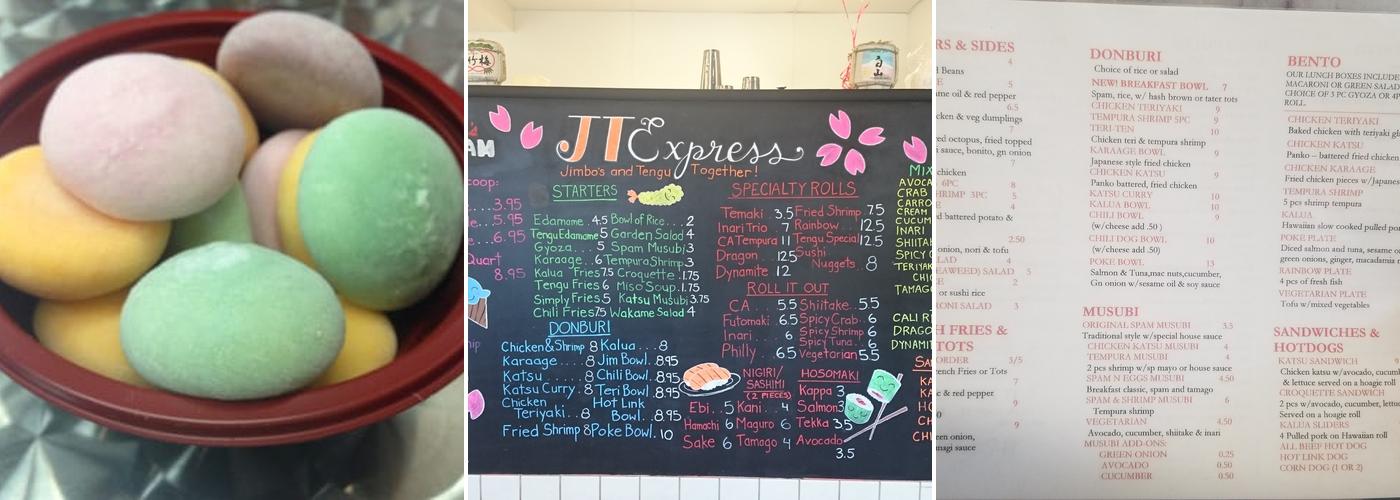 JTExpress
Jimbo's and Tengu Together!
AM
coop:
3.95
5.95
6.95
Quart
8.95
STARTERS
Edamame 4.5 Bowl of Rice... 2
Tengu Edamame 5 Garden Salad 4
Gyoza.... 5 Spam Musubi 3
Karaage.. 6 Tempura Shrimp 3
Kalua Fries 7.5 Croquette 1.75
Tengu Fries 6 Miso Soup 1.75
Simply Fries 5 Katsu Musubi 3.75
Chili Fries 7.5 Wakame Salad 4
DONBURI
Chicken & Shrimp 8 Kalua... 8
Karaage... 8 Jim Bowl. 8.95
Katsu ..... 8 Chili Bowl. 8.95
Katsu Curry. 8 Teri Bowl 8.95
Chicken Teriyaki.. 8 Hot Link Bowl.. 8.95
Fried Shrimp 8 Poke Bowl. 10
SPECIALTY ROLLS
Temaki . 3.5 Fried Shrimp 7.5
Inari Trio 7 Rainbow.... 12.5
CA Tempura 11 Tengu Special 12.5
Dragon... 12.5 Sushi Nuggets.. 8
Dynamite 12
ROLL IT OUT
CA.... 5.5 Shiitake.. 5.5
Futomaki . 6.5 Spicy Crab.. 6
Inari..... 6 Spicy Shrimp 6
Spicy Tuna.. 6
Philly... 6.5 Vegetarian 5.5
NIGIRI/
SASHIMI
(2 PIECES)
Ebi.. 5 Kani.. 4
Hamachi 6 Maguro 6
Sake 6 Tamago 4
HOSOMAKI
Kappa 3
Salmon 3.5
Tekka 3.5
Avocado
3.5
MIX
AVOCA
CRAB
CARRO
CREAM
CUCUM
INARI
SHIITA
SPICY
TERIYAK
CHIC
TAMAGO
CALI R
DRAGO
DYNAMIT
RS & SIDES
4
d Beans
5
me oil & red pepper
6.5
cken & veg dumplings
7
ed octopus, fried topped
i sauce, bonito, gn onion
7
chicken
6PC 8
HRIMP 3PC 5
4
d battered potato &
2.50
onion, nori & tofu
LAD 4
EAWEED) SALAD 5
2
or sushi rice
RONI SALAD 3
H FRIES &
TOTS
ORDER 3/5
ench Fries or Tots
7
e & red pepper
9
een onion,
nagi sauce
DONBURI
Choice of rice or salad
NEW! BREAKFAST BOWL 7
Spam, rice, w/ hash brown or tater tots
CHICKEN TERIYAKI 9
TEMPURA SHRIMP 5PC 9
TERI-TEN 10
Chicken teri & tempura shrimp
KARAAGE BOWL 9
Japanese style fried chicken
CHICKEN KATSU 9
Panko battered, fried chicken
KATSU CURRY 10
KALUA BOWL 9
CHILI BOWL 9
(w/cheese add .50 )
CHILI DOG BOWL 10
(w/cheese add .50)
POKE BOWL 13
Salmon & Tuna,mac nuts,cucumber,
Gn onion w/sesame oil & soy sauce
MUSUBI
ORIGINAL SPAM MUSUBI 3.5
Traditional style w/special house sauce
CHICKEN KATSU MUSUBI 4
TEMPURA MUSUBI 4
2 pcs shrimp w/sp mayo or house sauce
SPAM N EGGS MUSUBI 4.50
Breakfast classic, spam and tamago
SPAM & SHRIMP MUSUBI 6
Tempura shrimp
VEGETARIAN 4.50
Avocado, cucumber, shiitake & inari
MUSUBI ADD-ONS:
GREEN ONION 0.25
AVOCADO 0.50
CUCUMBER 0.50
BENTO
OUR LUNCH BOXES INCLUDE
MACARONI OR GREEN SALAD
CHOICE OF 3 PC GYOZA OR 4P
ROLL.
CHICKEN TERIYAKI
Baked chicken with teriyaki gla
CHICKEN KATSU
Panko – battered fried chicken
CHICKEN KARAAGE
Fried chicken pieces w/Japanes
TEMPURA SHRIMP
5 pcs shrimp tempura
KALUA
Hawaiian slow cooked pulled por
POKE PLATE
Diced salmon and tuna, sesame o
green onions, ginger, macadamia n
RAINBOW PLATE
4 pcs of fresh fish
VEGETARIAN PLATE
Tofu w/mixed vegetables
SANDWICHES &
HOTDOGS
KATSU SANDWICH 9
Chicken katsu w/avocado, cucumb
& lettuce served on a hoagie roll
CROQUETTE SANDWICH
2 pcs w/avocado, cucumber, lettuc
Served on a hoagie roll
KALUA SLIDERS
4 Pulled pork on Hawaiian roll
ALL BEEF HOT DOG
HOT LINK DOG
CORN DOG (1 OR 2)